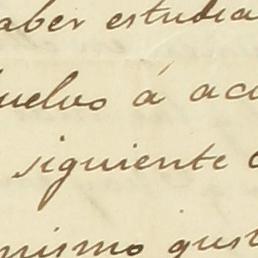 aber estudia
uelvo á acu
siguiente
mismo gust